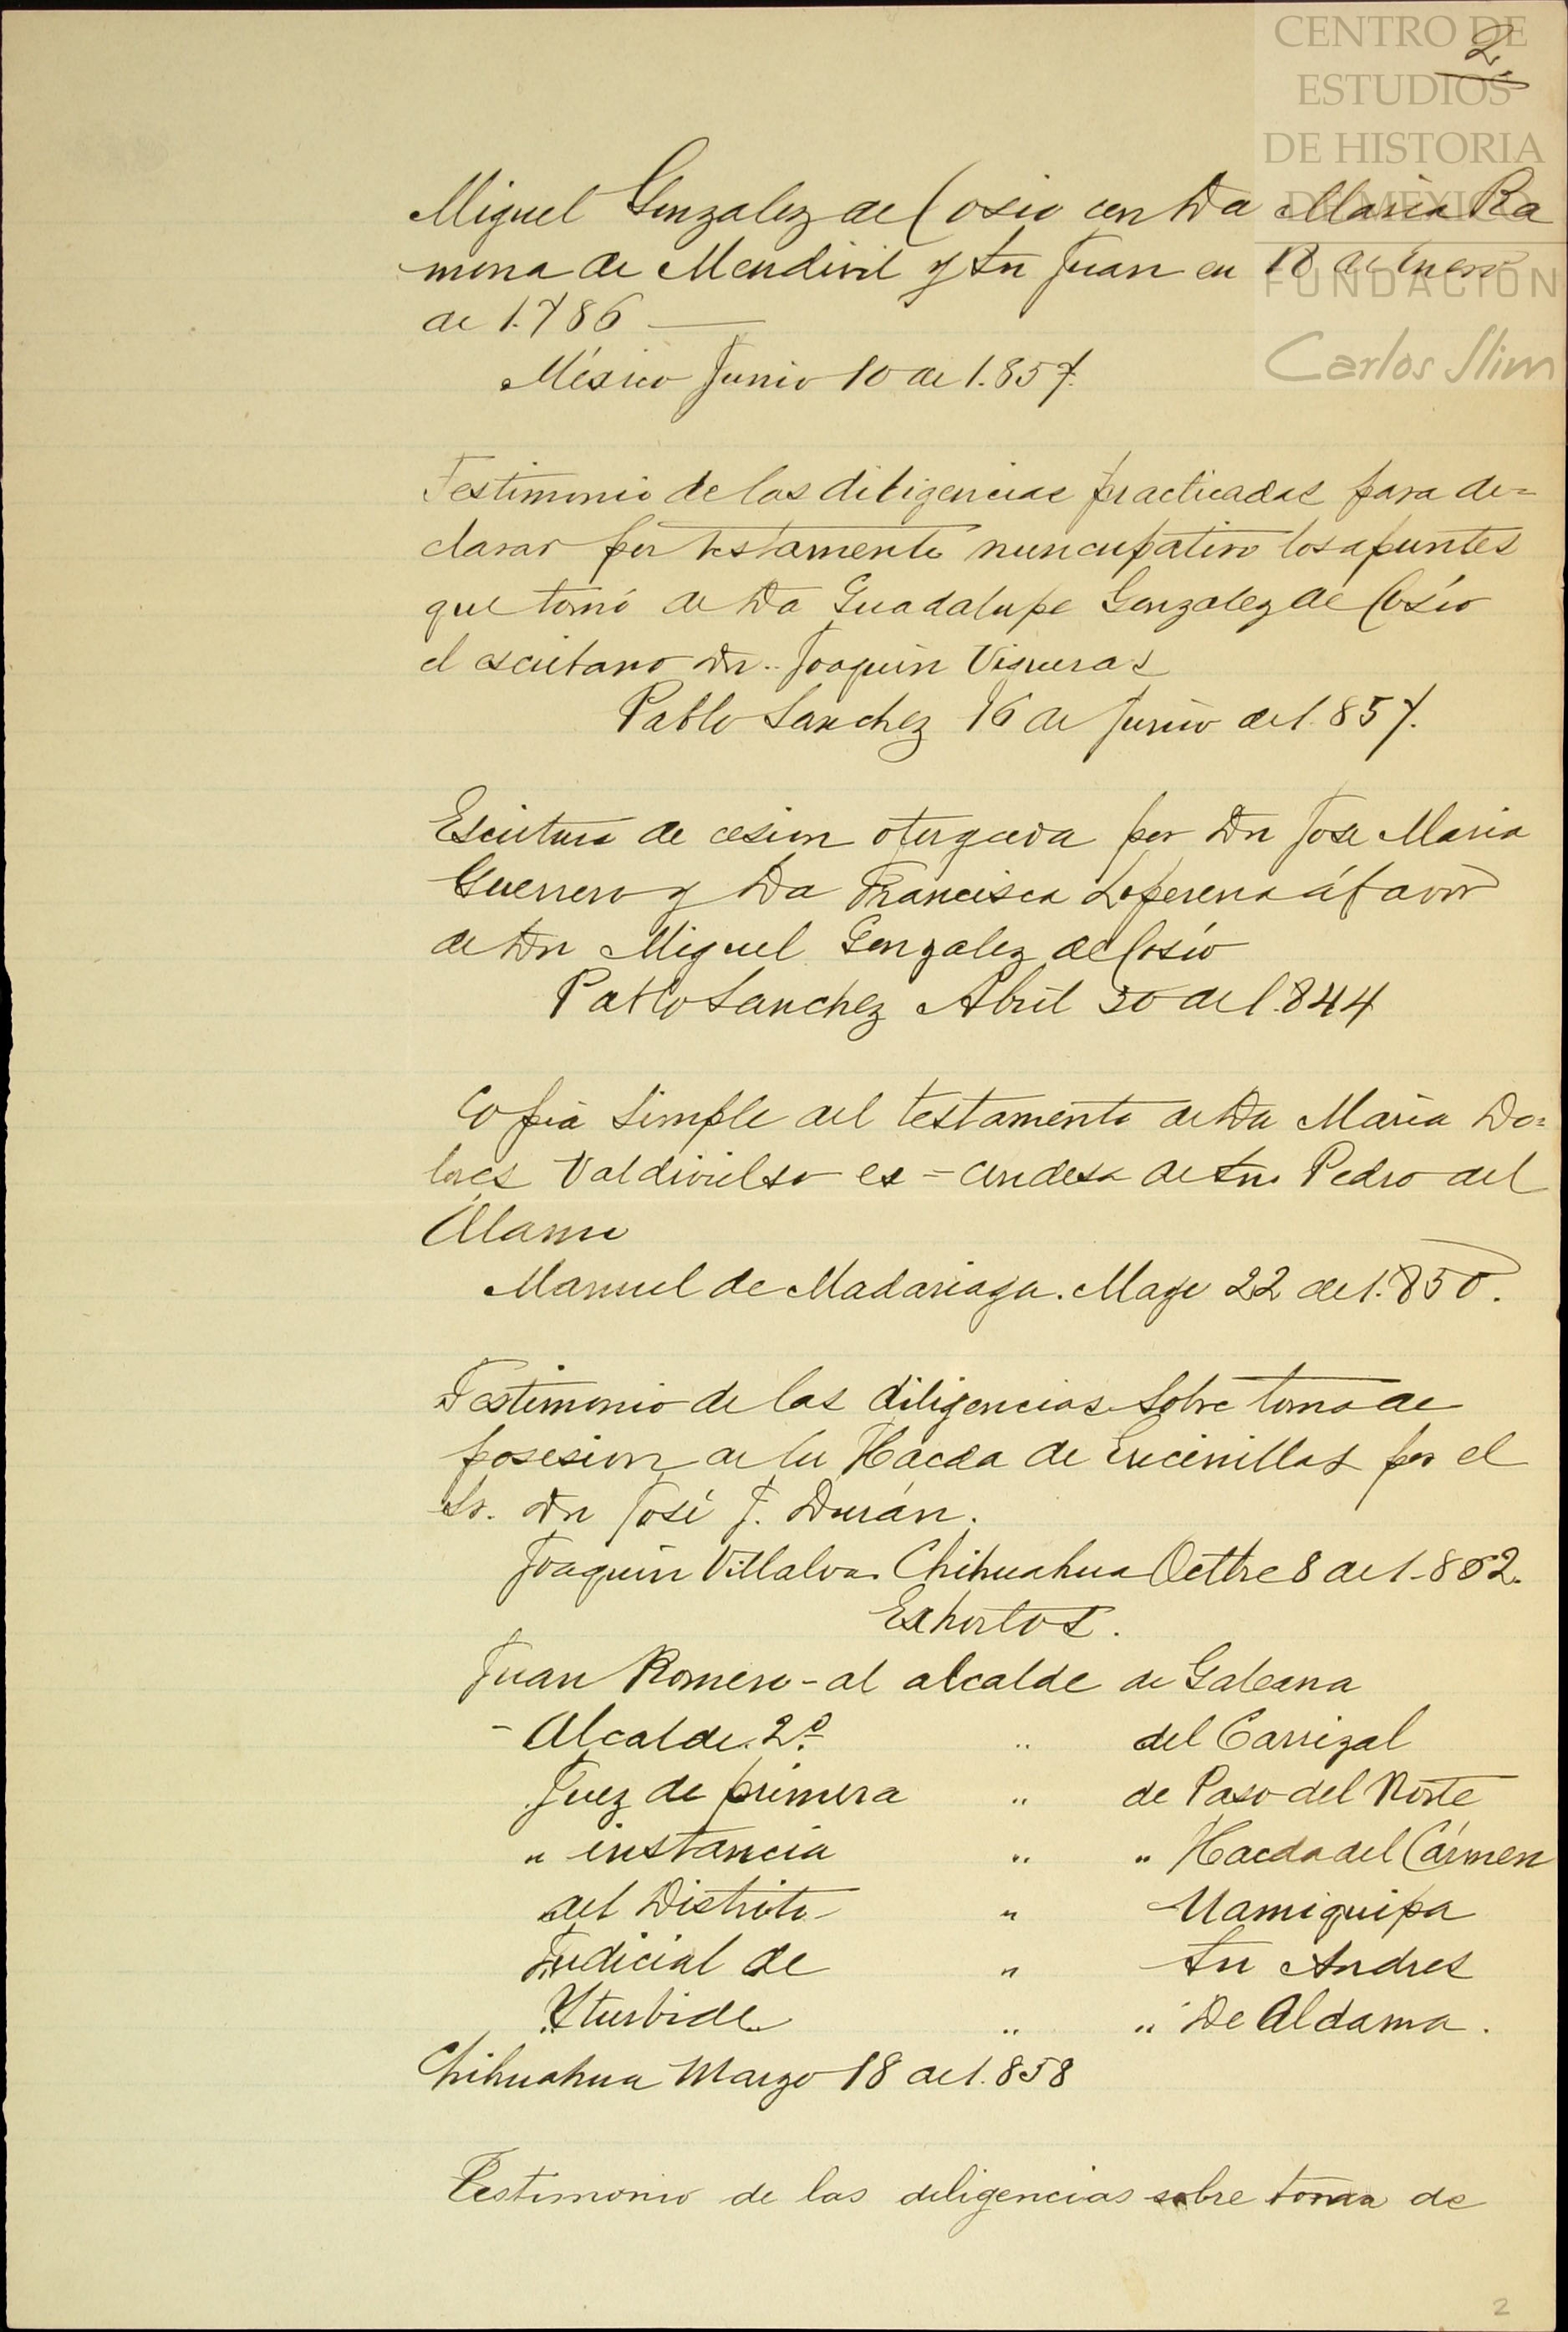 CENTRO DE
ESTUDIOS
DE HISTORIA
DE MÉXICO
FUNDACIÓN
Carlos Slim
2.
Miguel Gonzalez de Cosio con Da Maria Ra
mona de Mendivil y Sn Juan en 18 de Enero
de 1.786
México Junio 10 de 1.857.
Testimonio de las diligencias practicadas para de=
clarar por testamento nuncupativo los apuntes
que tomó de Da Guadalupe Gonzalez de Cosío
el escribano Dn. Joaquin Vigueras
Pablo Sanchez 16 de Junio de 1.857.
Escritura de cesion otorgada por Dn Jose Maria
Guerrero y Da Francisca Loperena á favor
de Dn Miguel Gonzalez de Cosío
Pablo Sanchez Abril 30 de 1.844
Copia simple del testamento de Da Maria Do=
lores Valdivielso ex=condesa de Sn. Pedro del
Alamo
Manuel de Madariaga. Mayo 22 de 1.850.
Testimonio de las diligencias sobre toma de
posesion de la Hacda de Encinillas por el
Sr. Dn José F. Durán.
Joaquin Villalva. Chihuahua Octbre 8 de 1.862.
Exhortos.
Juan Romero - al alcalde de Galeana
- Alcalde. 2º " del Carrizal
Juez de primera " de Paso del Norte
" instancia " " Hacda del Cármen
del Distrito " Namiquipa
Judicial de " Sn Andres
Yturbide " " De Aldama.
Chihuahua Marzo 18 de 1.858
Testimonio de las diligencias sobre toma de
2